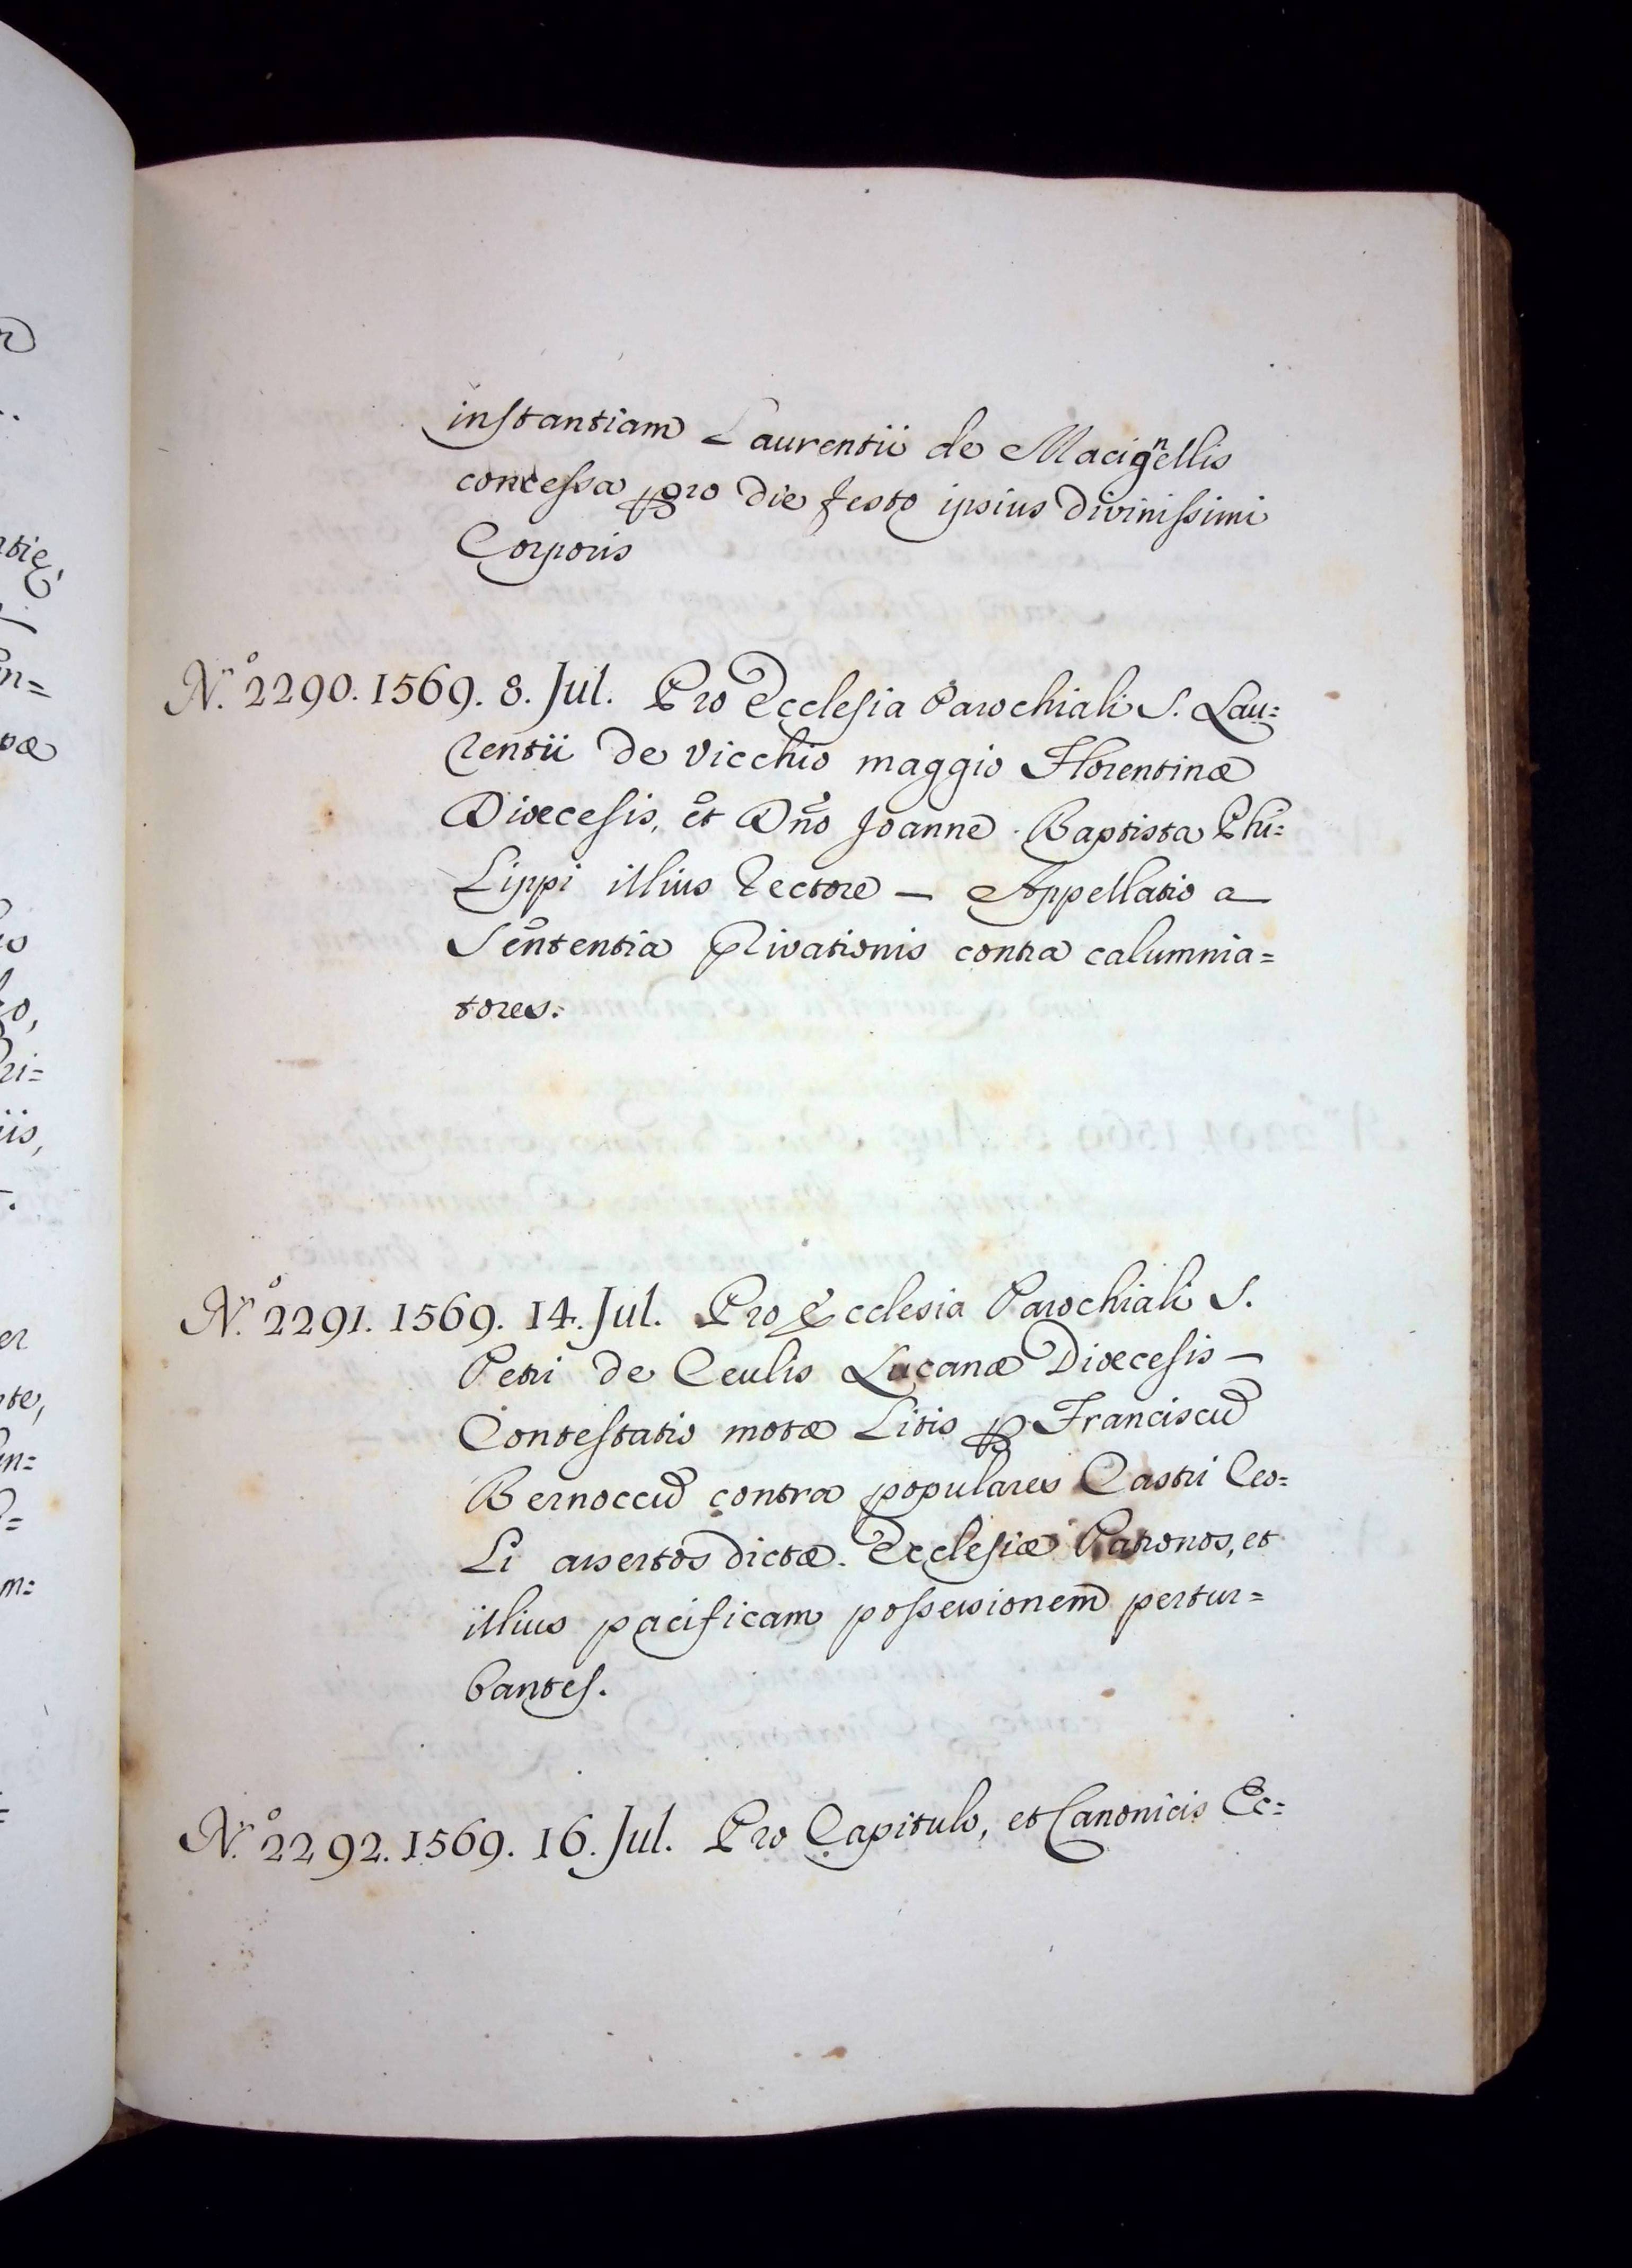 instantiam Laurentii de Macignellis
concessa pro die festo ipsius Divinissimi
Corporis
N.º 2290. 1569. 8. Jul. Pro Ecclesia Parochiali S. Lau=
rentii de Vicchio maggio Florentinæ
Diœcesis, et Dño Joanne Baptista Phi=
Lippi illius Rectore — Appellatio a
Sententia Privationis contra calumnia=
tores.
N.º 2291. 1569. 14. Jul. Pro Ecclesia Parochiali S.
Petri de Ceulis Lucanæ Diœcesis —
Contestatio motæ Litis p Franciscũ
Bernoccũ contra populares Castri Ceo=
Li assertos dictæ Ecclesiæ Patronos, et
illius pacificam possessionem pertur=
bantes.
N.º 2292. 1569. 16. Jul. Pro Capitulo, et Canonicis Ec=